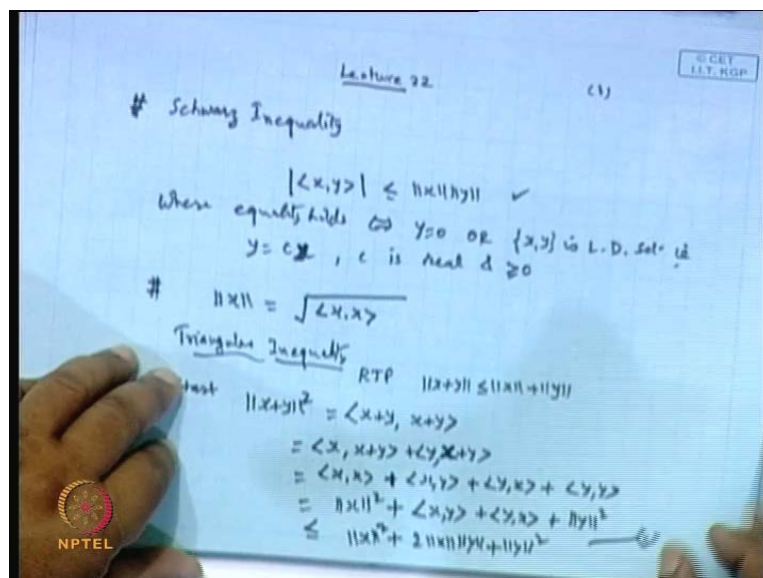 Lecture 22
(1)
© CET
I.I.T. KGP
# Schwarz Inequality
|<x,y>| ≤ ||x|| ||y|| ✓
Where equality holds ⇔ y=0 OR {x,y} is L.D. Set. ie
y = cx, c is real & ≥0
# ||x|| = √<x,x>
Triangular Inequality
RTP ||x+y|| ≤ ||x|| + ||y||
||x+y||² = <x+y, x+y>
= <x, x+y> + <y, x+y>
= <x,x> + <x,y> + <y,x> + <y,y>
= ||x||² + <x,y> + <y,x> + ||y||²
≤ ||x||² + 2||x|| ||y|| + ||y||²
NPTEL